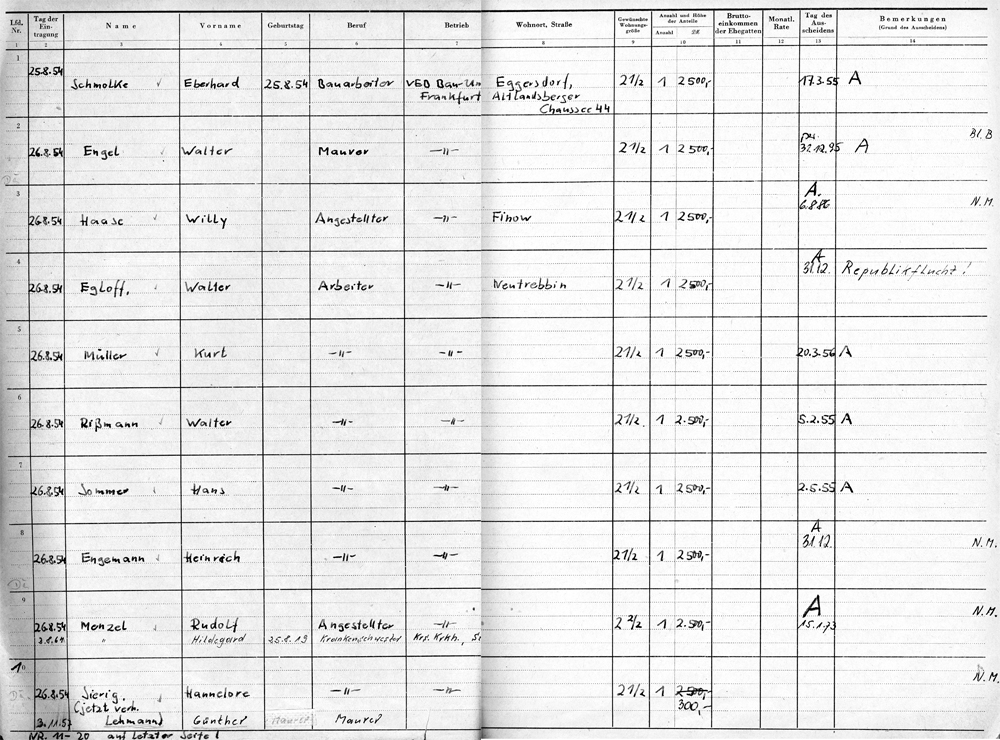 Lfd. Nr. Tag der Ein- tragung Name Vorname Geburtstag Beruf Betrieb Wohnort, Straße Gewünschte Wohnungs- größe Anzahl und Höhe der Anteile Anzahl Brutto- einkommen der Ehegatten Monatl. Rate Tag des Aus- scheidens Bemerkungen (Grund des Ausscheidens)
1 2 3 4 5 6 7 8 9 10 11 12 13 14
1
25.8.54 Schmolke Eberhard 25.8.54 Bauarbeiter VEB Bau-Un Eggersdorf, 2 1/2 1 2500,- 17.3.55 A
Frankfurt Altlandsberger
Chaussee 44
2 Bl. B
26.8.54 Engel Walter Maurer —"— 2 1/2 1 2500,- 31.12.95 A
3 A. N.M.
26.8.54 Haase Willy Angestellter —"— Finow 2 1/2 1 2500,- 6.8.86
4 A
31.12. Republikflucht!
26.8.54 Egloff, Walter Arbeiter —"— Neutrebbin 2 1/2 1 2500,-
5
26.8.54 Müller Kurt —"— —"— 2 1/2 1 2500,- 20.3.56 A
6
26.8.54 Rißmann Walter —"— —"— 2 1/2 1 2.500,- 5.2.55 A
7
26.8.54 Sommer Hans —"— —"— 2 1/2 1 2500,- 2.5.55 A
8 A
31.12. N.M.
26.8.54 Engemann Heinrich —"— —"— 2 1/2 1 2500,-
9 A N.M.
26.8.54 Menzel Rudolf Angestellter —"— 2 2/2 1 2.500,- 15.1.73
" Hildegard 25.8.19 Krankenschwester Krs. Krkh.,
10 N.M.
26.8.54 Sierig, Hannelore —"— —"— 2 1/2 1 2500,-
(jetzt verh. 300,-
3.11.57 Lehmann) Günther Maurer Maurer
NR. 11- 20 auf letzter Seite!